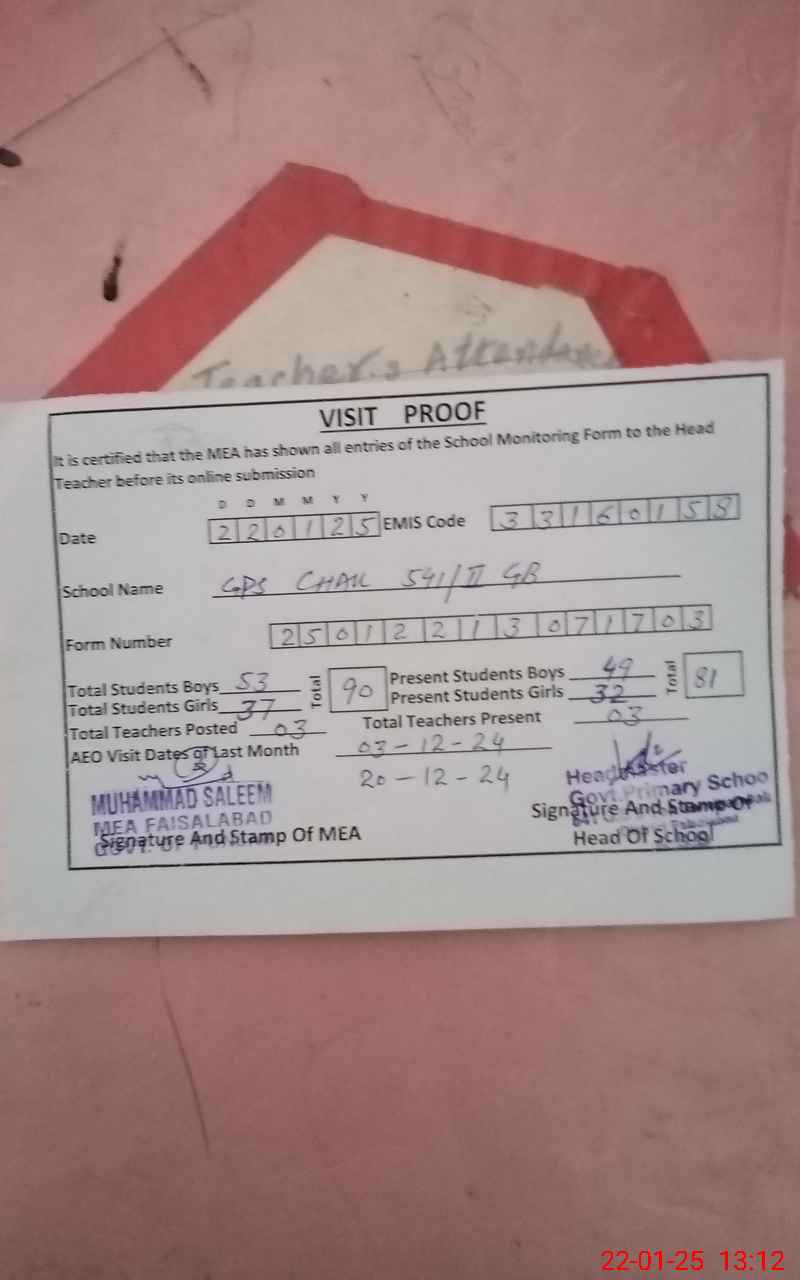 Teacher,s Attendance
VISIT PROOF
It is certified that the MEA has shown all entries of the School Monitoring Form to the Head
Teacher before its online submission
D D M M Y Y
Date 220125 EMIS Code 33160158
School Name GPS CHAK 541/II GB
Form Number 25012213071703
Total Students Boys 53 Total 90 Present Students Boys 49 Total 81
Total Students Girls 37 Present Students Girls 32
Total Teachers Posted 03 Total Teachers Present 03
AEO Visit Dates of Last Month 03-12-24
20-12-24
MUHAMMAD SALEEM
MEA FAISALABAD
Signature And Stamp Of MEA
Head Master
Govt Primary Schoo
Signature And Stamp Of
Head Of School
22-01-25 13:12